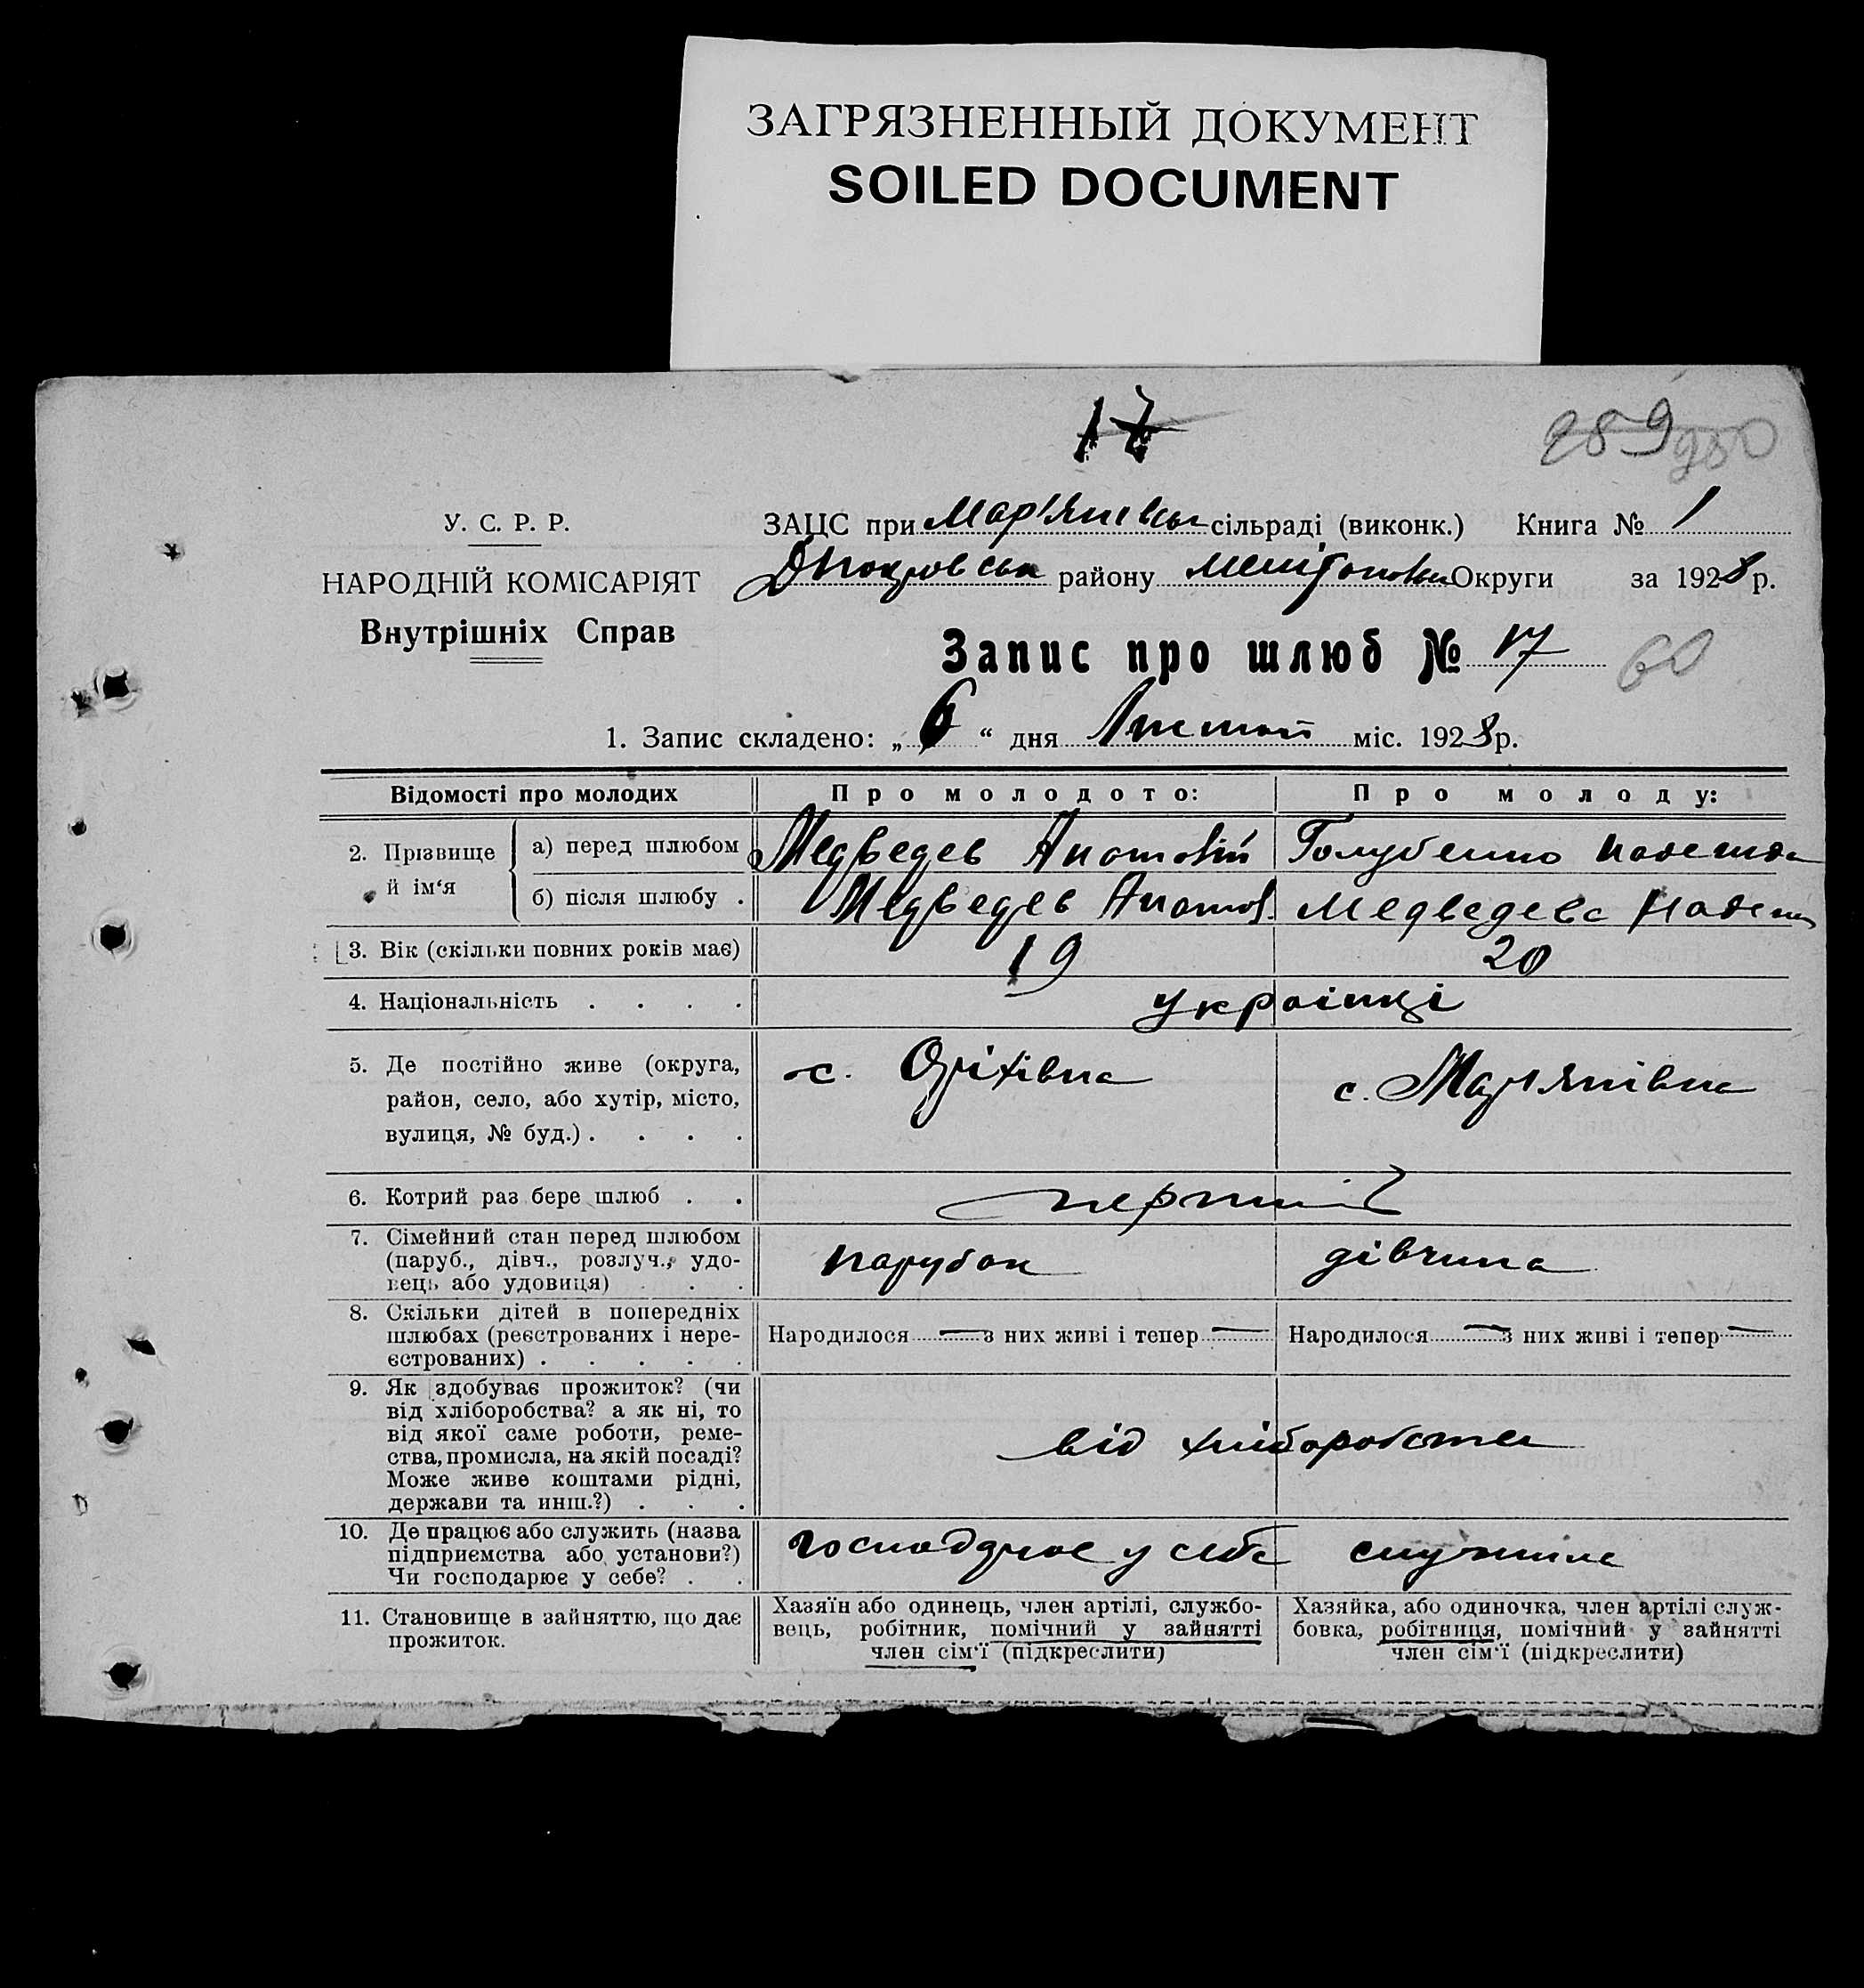 ЗАГРЯЗНЕННЫЙ ДОКУМЕНТ
SOILED DOCUMENT
17
289 980
У. С. Р. Р.
НАРОДНІЙ КОМІСАРІЯТ
Внутрішніх Справ
ЗАЦС при Мар'янівськ сільраді (виконк.) Книга № 1
району Округи за 1928 р.
Запис про шлюб № 17 60
1. Запис складено: „ 6 “ дня міс. 1928 р.
Відомості про молодих Про молодого: Про молоду:
2. Прізвище й ім‘я
а) перед шлюбом Медведев Анатолій Голубенко Надежда
б) після шлюбу . Медведев Анатол. Медведева
3. Вік (скільки повних років має) 19 20
4. Національність . . . . українці
5. Де постійно живе (округа,
район, село, або хутір, місто,
вулиця, № буд.) . . . .
с. Оріхівка с. Марянівка
6. Котрий раз бере шлюб . . перший
7. Сімейний стан перед шлюбом
(паруб., дівч., розлуч., удо-
вець або удовиця) . . .
парубок дівчина
8. Скільки дітей в попередніх
шлюбах (реєстрованих і нере-
єстрованих) . . . . .
Народилося — з них живі і тепер — Народилося — з них живі і тепер —
9. Як здобуває прожиток? (чи
від хліборобства? а як ні, то
від якої саме роботи, реме-
ства, промисла, на якій посаді?
Може живе коштами рідні,
держави та инш.?) . . .
від хліборобства
10. Де працює або служить (назва
підприємства або установи?)
Чи господарює у себе? . .
господарює у себе служила
11. Становище в зайняттю, що дає
прожиток.
Хазяїн або одинець, член артілі, службо-
вець, робітник, помічний у зайнятті
член сім‘ї (підкреслити)
Хазяйка, або одиночка, член артілі служ-
бовка, робітниця, помічний у зайнятті
член сім‘ї (підкреслити)